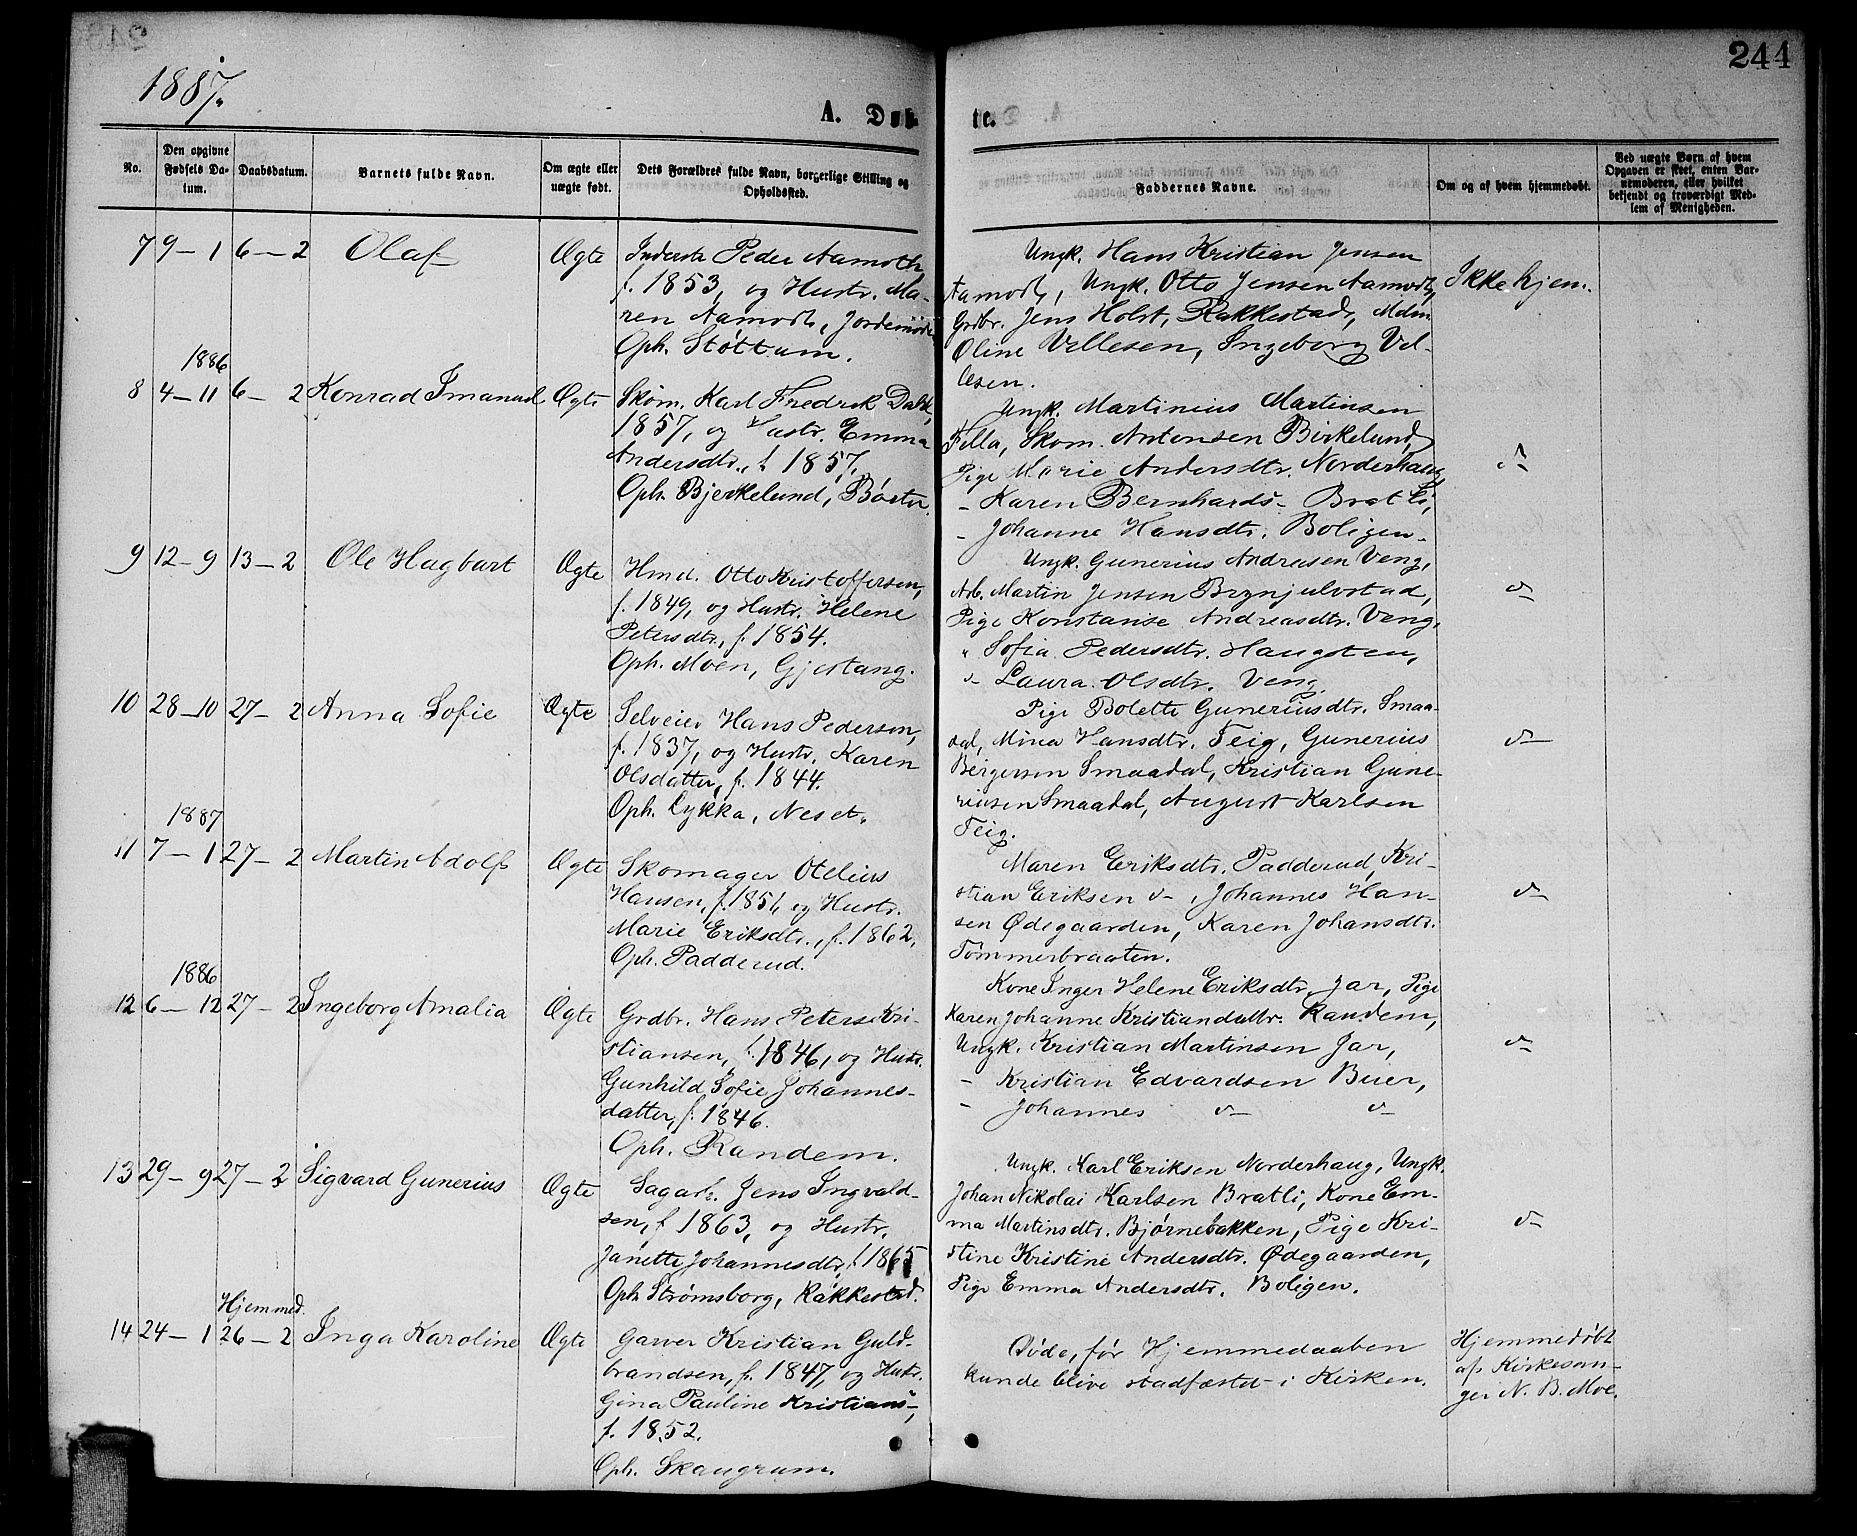 244
1887.
A. Døbte.
No.
Den opgivne
Fødsels Da-
tum.
Daabsdatum.
Barnets fulde Navn.
Om ægte eller
uægte født.
Dets Forældres fulde Navn, borgerlige Stilling og
Opholdssted.
Faddernes Navne.
Om og af hvem hjemmedøbt.
Ved uægte Børn af hvem
Opgaven er skeet, enten Bar-
nemoderen, eller hvilket
bekjendt og troværdigt Med-
lem af Menigheden.
7 9-1 6-2 Olaf Ægte
Inderste Peder Aamodt,
f. 1853, og Hustr. Ma-
ren Aamodt, Jordemoder
Oph. Støttum.
Ungk. Hans Kristian Jensen
Aamodt, Ungk. Otto Jensen Aamodt,
Grdbr. Jens Holst, Rakkestad, Mdm
Oline Villesen, Ingeborg Vil-
lesen.
Ikke hjem.
1886
8 4-11 6-2 Konrad Imanuel Ægte
Skom. Karl Fredrik Dahl,
1857, og Hustr. Emma
Andersdtr., f. 1857.
Oph. Bjerkelund, Børter.
Ungk. Martinius Martinsen
Fella, Skom. Antonsen Birkelund,
Pige Marie Andersdtr. Norderhaug
- Karen Bernhards- Bratli,
- Johanne Hansdtr. Boligen.
d-
9 12-9 13-2 Ole Hagbart Ægte
Hmd. Otto Kristoffersen,
f. 1849, og Hustr. Helene
Petersdtr, f. 1854.
Oph. Moen, Gjestang.
Ungk. Gunerius Andreasen Veng,
Arb. Martin Jensen Brynjulvstad,
Pige Konstanse Andreasdtr. Veng,
" Sofia Pedersdtr. Haugsten,
d- Laura Olsdtr. Veng.
d-
10 28-10 27-2 Anna Sofie Ægte
Selveier Hans Pedersen,
f. 1837, og Hustr. Karen
Olsdatter, f. 1844.
Oph. Lykka, Neset.
Pige Bolette Guneriusdtr. Smaa-
dal, Mina Hansdtr. Teig, Gunerius
Bergersen Smaadal, Kristian Gune-
riusen Smaadal, August Karlsen
Teig.
d-
1887
11 7-1 27-2 Martin Adolf Ægte
Skomager Otelius
Hansen, f. 1851, og Hustr.
Marie Eriksdtr., f. 1862,
Oph. Padderud.
Maren Eriksdtr. Padderud, Kri-
stian Eriksen d-, Johannes Han-
sen Ødegaarden, Karen Johansdtr.
Tømmerbraaten.
d-
1886
12 6-12 27-2 Ingeborg Amalia Ægte
Grdbr. Hans Peters Kri-
stiansen, f. 1846, og Hustr.
Gunhild Sofie Johannes-
datter, f. 1846.
Oph. Randem.
Kone Inger Helene Eriksdtr. Jar, Pige
Karen Johanne Kristiansdattr. Randem,
Ungk. Kristian Martinsen Jar,
- Kristian Edvardsen Beier,
- Johannes d- d-
d-
13 29-9 27-2 Sigvard Gunerius Ægte
Sagarb. Jens Ingvald-
sen, f. 1863, og Hustr.
Janette Johannesdtr., f. 1865
Oph. Strømsborg, Rakkestad.
Ungk. Karl Eriksen Norderhaug, Ungk.
Johan Nikolai Karlsen Bratli, Kone Em-
ma Martinsdtr. Bjørnebakken, Pige Kri-
stine Kristine Andersdtr. Ødegaarden,
Pige Emma Andersdtr. Boligen.
d-
Hjemmed.
14 24-1 26-2 Inga Karoline Ægte
Garver Kristian Guld-
brandsen, f. 1847, og Hustr.
Gina Pauline Kristians-,
f. 1852.
Oph. Skaugrum.
Døde, før Hjemmedaaben
kunde blive stadfæstet i Kirken.
Hjemmedøbt
af Kirkesan-
ger N. B. Moe.